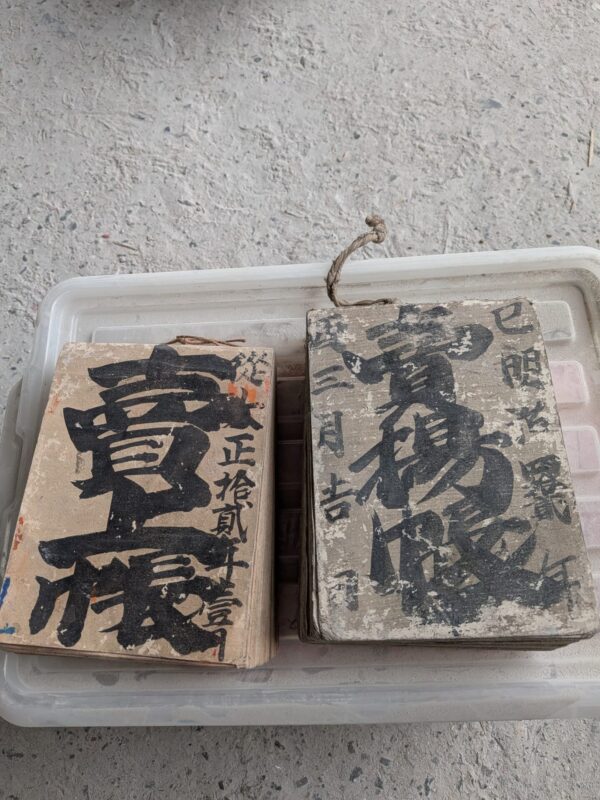 己明治四貳年
賣揚帳
酉三月吉日
從大正拾貳年壹月
賣上帳